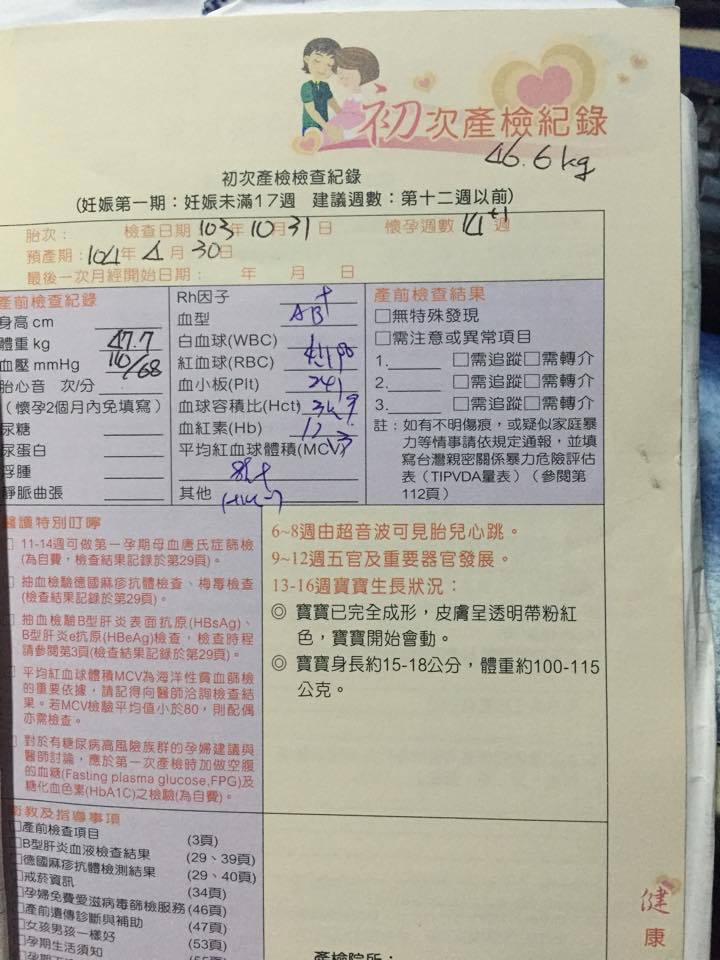 初次產檢紀錄
46.6kg
初次產檢檢查紀錄
(妊娠第一期：妊娠未滿17週 建議週數：第十二週以前)
胎次： 檢查日期 103年 10月 31日 懷孕週數 14+1週
預產期：104年 4月 30日
最後一次月經開始日期： 年 月 日
產前檢查紀錄
身高 cm
體重 kg 47.7
血壓 mmHg 110/68
胎心音 次/分
(懷孕2個月內免填寫)
尿糖
尿蛋白
浮腫
靜脈曲張
Rh因子 +
血型 AB
白血球(WBC)
紅血球(RBC)
血小板(Plt) 241
血球容積比(Hct)
血紅素(Hb)
平均紅血球體積(MCV)
其他
產前檢查結果
□無特殊發現
□需注意或異常項目
1. □需追蹤□需轉介
2. □需追蹤□需轉介
3. □需追蹤□需轉介
註：如有不明傷痕，或疑似家庭暴
力等情事請依規定通報，並填
寫台灣親密關係暴力危險評估
表（TIPVDA量表）（參閱第
112頁）
醫護特別叮嚀
□ 11-14週可做第一孕期母血唐氏症篩檢
(為自費，檢查結果記錄於第29頁)。
□ 抽血檢驗德國麻疹抗體檢查、梅毒檢查
(檢查結果記錄於第29頁)。
□ 抽血檢驗B型肝炎表面抗原(HBsAg)、
B型肝炎e抗原(HBeAg)檢查，檢查時程
請參閱第3頁(檢查結果記錄於第29頁)。
□ 平均紅血球體積MCV為海洋性貧血篩檢
的重要依據，請記得向醫師洽詢檢查結
果。若MCV檢驗平均值小於80，則配偶
亦需檢查。
□ 對於有糖尿病高風險族群的孕婦建議與
醫師討論，應於第一次產檢時加做空腹
的血糖(Fasting plasma glucose,FPG)及
糖化血色素(HbA1C)之檢驗(為自費)。
6~8週由超音波可見胎兒心跳。
9~12週五官及重要器官發展。
13-16週寶寶生長狀況：
◎ 寶寶已完全成形，皮膚呈透明帶粉紅
色，寶寶開始會動。
◎ 寶寶身長約15-18公分，體重約100-115
公克。
衛教及指導事項
□產前檢查項目 (3頁)
□B型肝炎血液檢查結果 (29、39頁)
□德國麻疹抗體檢測結果 (29、40頁)
□戒菸資訊 (34頁)
□孕婦免費愛滋病毒篩檢服務 (46頁)
□產前遺傳診斷與補助 (47頁)
□女孩男孩一樣好 (53頁)
□孕期生活須知
產檢院所：
健康